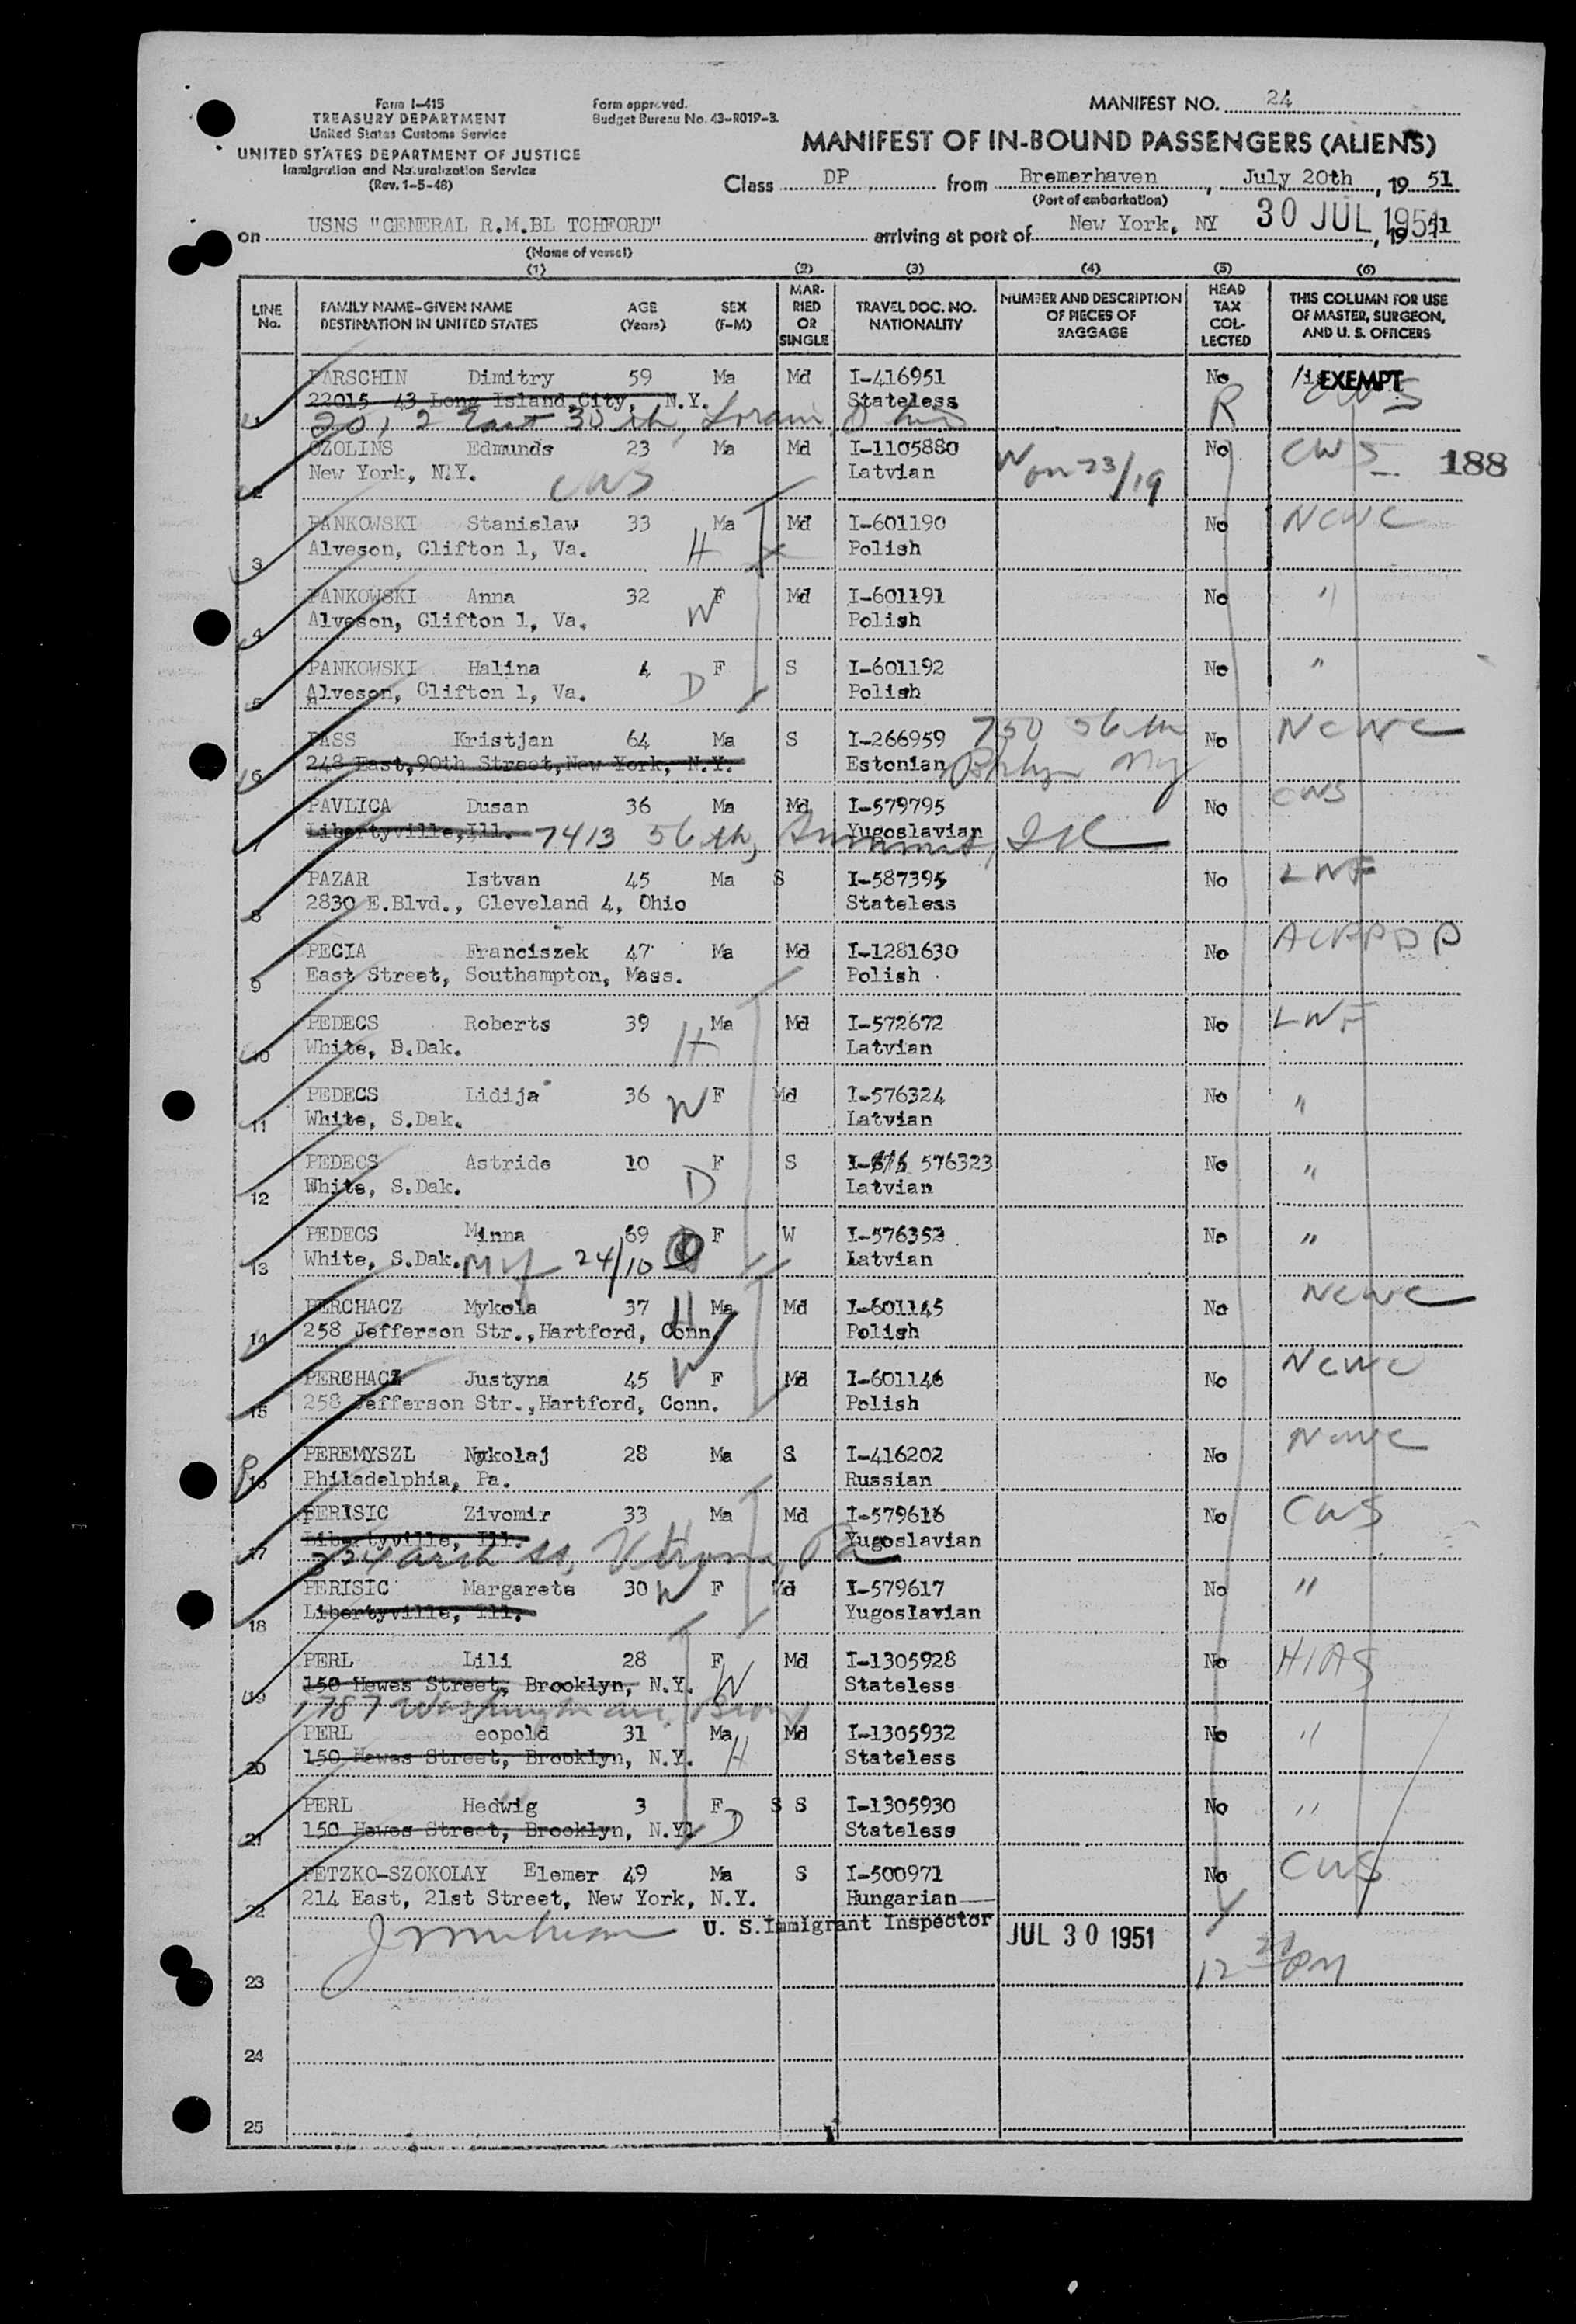 Form I-415
TREASURY DEPARTMENT
United States Customs Service
UNITED STATES DEPARTMENT OF JUSTICE
Immigration and Naturalization Service
(Rev. 1-5-48)
Form approved.
Budget Bureau No. 43-R019-3.
MANIFEST NO. 24
MANIFEST OF IN-BOUND PASSENGERS (ALIENS)
Class DP from Bremerhaven, July 20th, 19 51
(Port of embarkation)
on USNS "GENERAL R.M.BL TCHFORD" arriving at port of New York, NY 30 JUL 1951, 19 51
(Name of vessel)
(1) (2) (3) (4) (5) (6)
LINE No. FAMILY NAME-GIVEN NAME DESTINATION IN UNITED STATES AGE (Years) SEX (F-M) MAR-RIED OR SINGLE TRAVEL DOC. NO. NATIONALITY NUMBER AND DESCRIPTION OF PIECES OF BAGGAGE HEAD TAX COL-LECTED THIS COLUMN FOR USE OF MASTER, SURGEON, AND U. S. OFFICERS
PARSCHIN Dimitry 59 Ma Md I-416951 No EXEMPT CWS
22015 43 Long Island City, N.Y. Stateless R
1 East 30th, Lorain, Ohio
OZOLINS Edmunds 23 Ma Md I-1105880 No CWS 188
New York, N.Y. CWS Latvian 23/19
2
PANKOWSKI Stanislaw 33 Ma Md I-601190 No NCWC
Alveson, Clifton 1, Va. H Polish
3
PANKOWSKI Anna 32 F Md I-601191 No "
Alveson, Clifton 1, Va. W Polish
4
PANKOWSKI Halina 4 F S I-601192 No "
Alveson, Clifton 1, Va. D Polish
5
PASS Kristjan 64 Ma S I-266959 750 56th No NCWC
248 East,90th Street,New York, N.Y. Estonian Bklyn NY
6
PAVLICA Dusan 36 Ma Md I-579795 No CWS
Libertyville,Ill. 7413 56th, Summit, Ill Yugoslavian
7
PAZAR Istvan 45 Ma S I-587395 No LWF
2830 E.Blvd., Cleveland 4, Ohio Stateless
8
PECIA Franciszek 47 Ma Md I-1281630 No
East Street, Southampton, Mass. Polish
9
PEDECS Roberts 39 Ma Md I-572672 No LWF
White, S.Dak. H Latvian
10
PEDECS Lidija 36 W F Md I-576324 No "
White, S.Dak. Latvian
11
PEDECS Astride 10 F S I-576323 No "
White, S.Dak. D Latvian
12
PEDECS Minna 69 F W I-576352 No "
White, S.Dak. 24/10 Latvian
13
PERCHACZ Mykola 37 H Ma Md I-601145 No NCWC
258 Jefferson Str.,Hartford, Conn. Polish
14
PERCHACZ Justyna 45 W F Md I-601146 No NCWC
258 Jefferson Str.,Hartford, Conn. Polish
15
PEREMYSZL Nykolaj 28 Ma S I-416202 No NCWC
Philadelphia, Pa. Russian
16
PERISIC Zivomir 33 Ma Md I-579616 No CWS
Libertyville, Ill. Yugoslavian
17 334 Arch St, Pa
PERISIC Margarete 30 W F Md I-579617 No "
Libertyville, Ill. Yugoslavian
18
PERL Lili 28 F Md I-1305928 No HIAS
150 Hewes Street, Brooklyn, N.Y. W Stateless
19 1787 Washington Ave, Bronx
PERL Leopold 31 Ma Md I-1305932 No "
150 Hewes Street, Brooklyn, N.Y. H Stateless
20
PERL Hedwig 3 F S S I-1305930 No "
150 Hewes Street, Brooklyn, N.Y. D Stateless
21
PETZKO-SZOKOLAY Elemer 49 Ma S I-500971 No CWS
214 East, 21st Street, New York, N.Y. Hungarian
22
U. S. Immigrant Inspector JUL 30 1951
23 12 PM
24
25